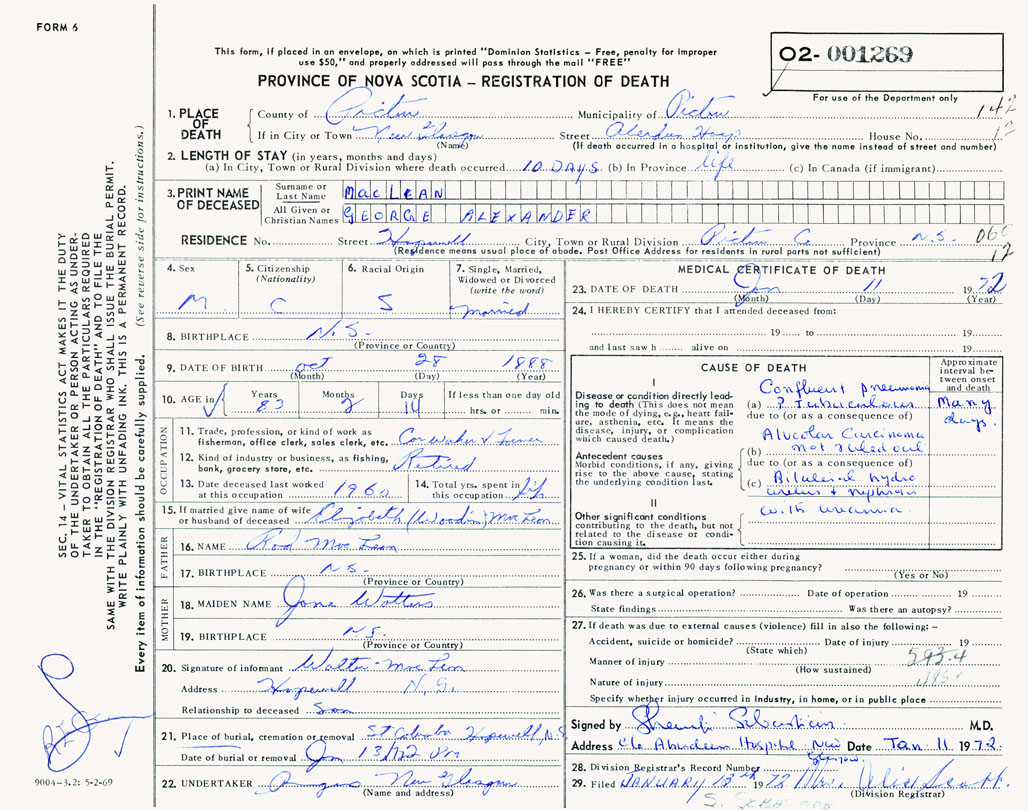 FORM 6
This form, if placed in an envelope, on which is printed "Dominion Statistics – Free, penalty for improper
use $50," and properly addressed will pass through the mail "FREE"
O2- 001269
PROVINCE OF NOVA SCOTIA – REGISTRATION OF DEATH
For use of the Department only
1. PLACE OF DEATH
County of Pictou Municipality of Pictou 142
If in City or Town New Glasgow Street Aberdeen Hosp House No. 12
(Name) (If death occurred in a hospital or institution, give the name instead of street and number)
2. LENGTH OF STAY (in years, months and days)
(a) In City, Town or Rural Division where death occurred 10 DAYS (b) In Province life (c) In Canada (if immigrant)
3. PRINT NAME OF DECEASED
Surname or Last Name MacLEAN
All Given or Christian Names GEORGE ALEXANDER
RESIDENCE No. Street Hopewell City, Town or Rural Division Pictou Co Province N.S. 060
(Residence means usual place of abode. Post Office Address for residents in rural parts not sufficient) 12
4. Sex M
5. Citizenship (Nationality) C
6. Racial Origin S
7. Single, Married, Widowed or Divorced (write the word) Married
8. BIRTHPLACE N.S.
(Province or Country)
9. DATE OF BIRTH Oct 28 1888
(Month) (Day) (Year)
10. AGE in Years 83 Months 2 Days 14 If less than one day old
hrs. or min.
OCCUPATION
11. Trade, profession, or kind of work as
fisherman, office clerk, sales clerk, etc. Car
12. Kind of industry or business, as fishing,
bank, grocery store, etc. Retired
13. Date deceased last worked at this occupation 1960
14. Total yrs. spent in this occupation life
15. If married give name of wife
or husband of deceased Elizabeth (Woodin) MacLean
FATHER
16. NAME Rod MacLean
17. BIRTHPLACE N.S.
(Province or Country)
MOTHER
18. MAIDEN NAME Jane Watters
19. BIRTHPLACE N.S.
(Province or Country)
20. Signature of informant Walter MacLean
Address Hopewell N.S.
Relationship to deceased Son
21. Place of burial, cremation or removal St Columba Hopewell, N.S
Date of burial or removal Jan 13/72
22. UNDERTAKER Angus New Glasgow
(Name and address)
MEDICAL CERTIFICATE OF DEATH
23. DATE OF DEATH Jan 11 1972
(Month) (Day) (Year)
24. I HEREBY CERTIFY that I attended deceased from:
19 to 19
and last saw h alive on 19
CAUSE OF DEATH
Approximate interval between onset and death
I
Disease or condition directly leading to death (This does not mean the mode of dying, e.g., heart failure, asthenia, etc. It means the disease, injury, or complication which caused death.)
Confluent pneumonia
(a) ? Tuberculous Many days.
due to (or as a consequence of)
Antecedent causes
Morbid conditions, if any, giving rise to the above cause, stating the underlying condition last.
Alveolar Carcinoma
(b) not ruled out
due to (or as a consequence of)
(c) Bilateral hydro
ureter + nephrosis
II
Other significant conditions contributing to the death, but not related to the disease or condition causing it.
with uraemia
25. If a woman, did the death occur either during
pregnancy or within 90 days following pregnancy?
(Yes or No)
26. Was there a surgical operation? Date of operation 19
State findings Was there an autopsy?
27. If death was due to external causes (violence) fill in also the following: –
Accident, suicide or homicide? Date of injury 19
(State which)
Manner of injury 593.4
(How sustained)
Nature of injury
Specify whether injury occurred in industry, in home, or in public place
Signed by M.D.
Address c/o Aberdeen Hospital New Glasgow Date Jan 11 1972
28. Division Registrar's Record Number
29. Filed JANUARY 13th 1972 Mrs.
(Division Registrar)
SEC. 14 – VITAL STATISTICS ACT MAKES IT THE DUTY
OF THE UNDERTAKER OR PERSON ACTING AS UNDER-
TAKER TO OBTAIN ALL THE PARTICULARS REQUIRED
IN THE "REGISTRATION OF DEATH" AND TO FILE THE
SAME WITH THE DIVISION REGISTRAR WHO SHALL ISSUE THE BURIAL PERMIT.
WRITE PLAINLY WITH UNFADING INK. THIS IS A PERMANENT RECORD.
Every item of information should be carefully supplied. (See reverse side for instructions.)
9004-3.2: 5-2-69